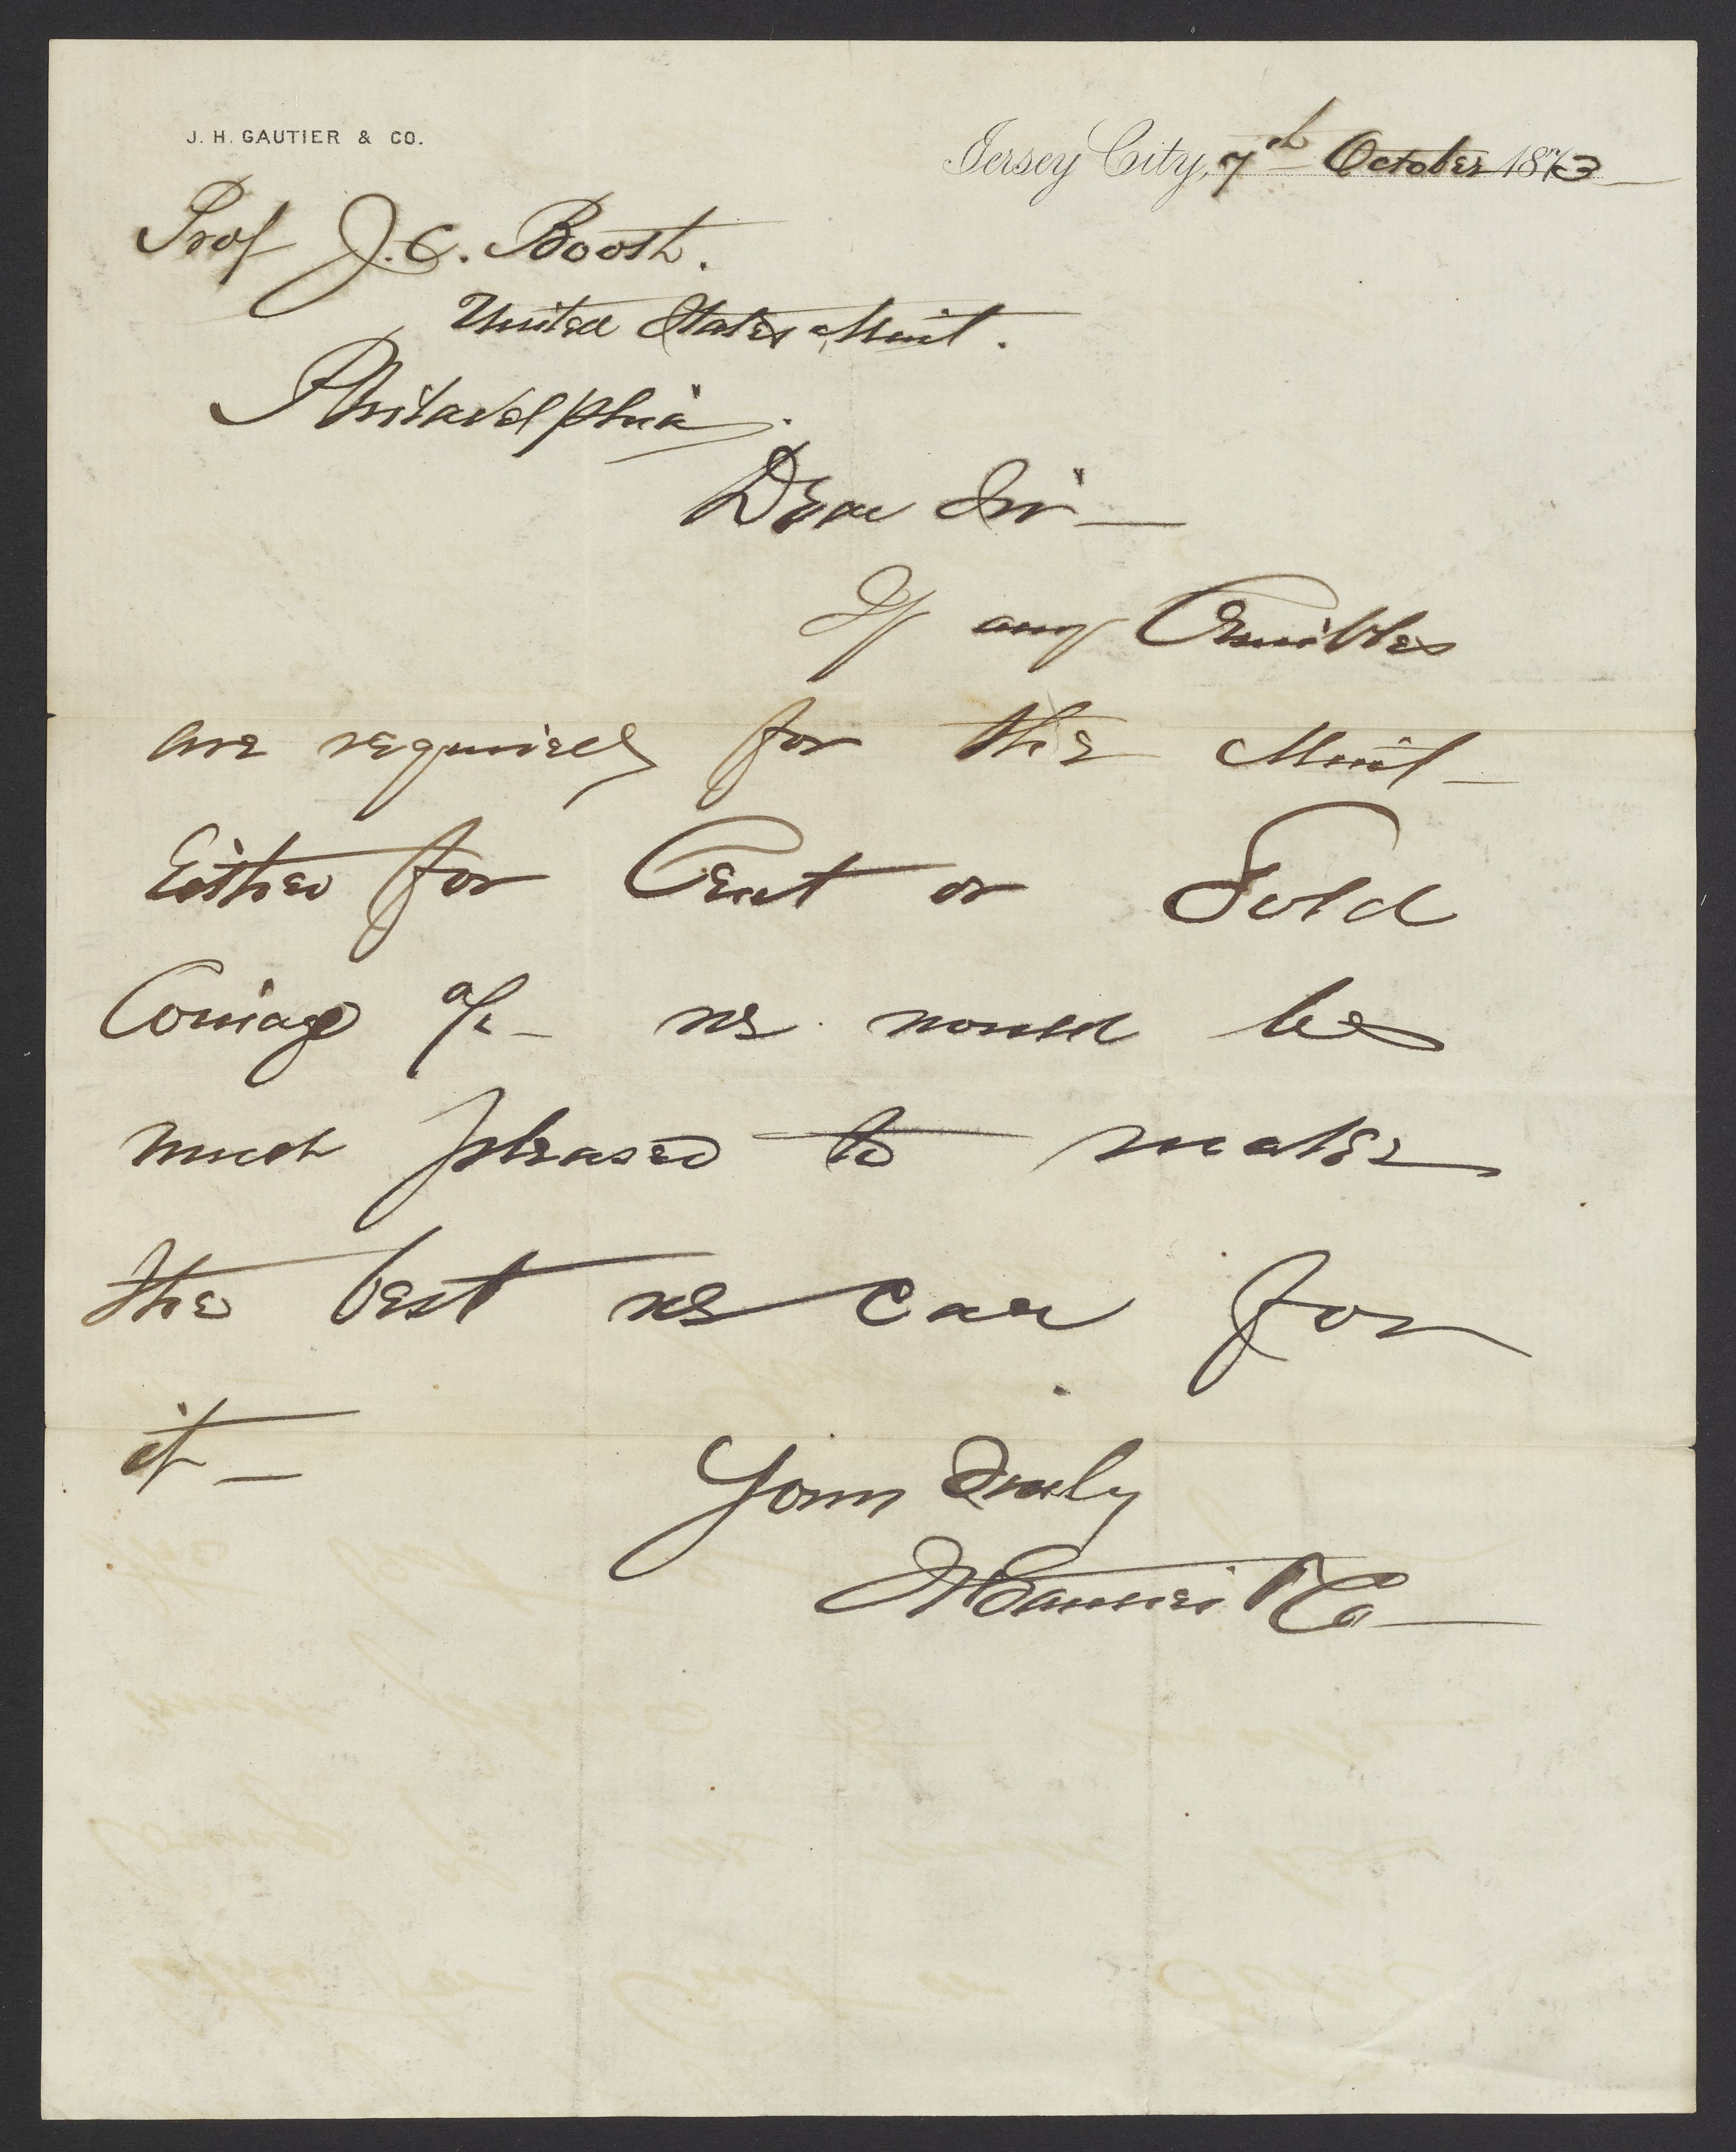 J. H. GAUTIER & CO.
Jersey City, 7th October 1873
Prof J. C. Booth.
United States Mint.
Philadelphia.
Dear Sir —
If any Crucibles
are required for the Mint —
Either for Cent or Gold
Coinage a/c — we would be
much pleased to make
the best we can for
it —
Yours Truly
J H Gautier & Co —